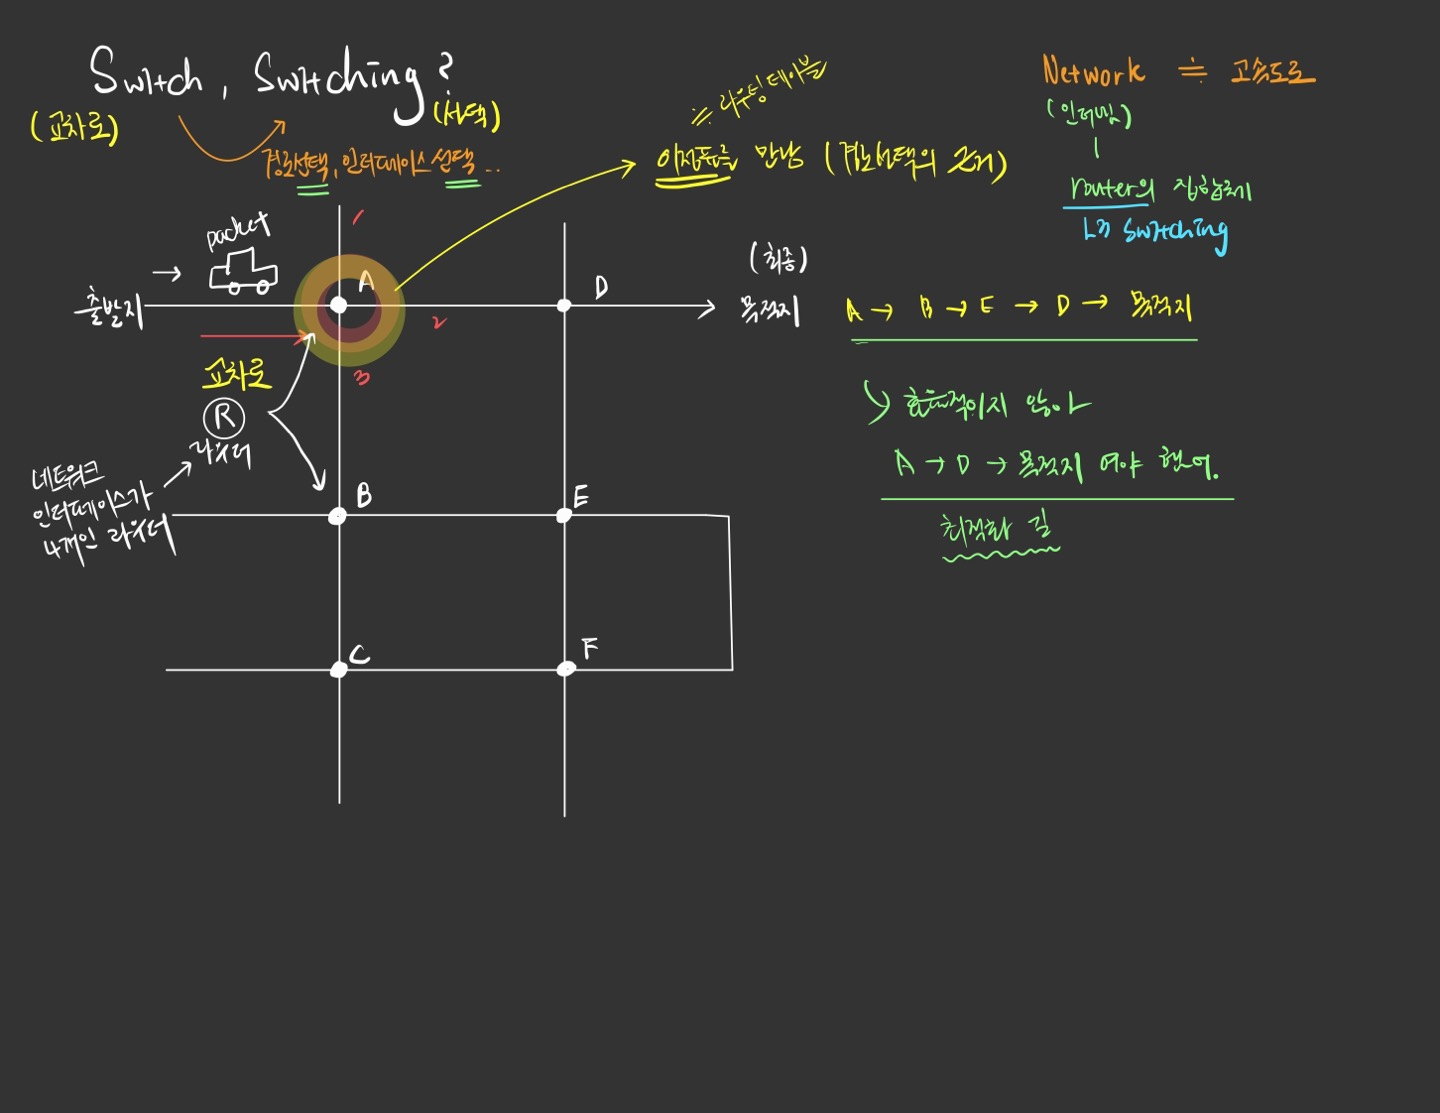 Switch, Switching?
(교차로)
(선택)
경로선택, 인터페이스 선택...
≒ 라우팅 테이블
이정표를 만남 (경로선택의 근거)
Network ≒ 고속도로
(인터넷)
router의 집합체
L3 Switching
packet
→
출발지
A
1
2
3
D
(최종)
목적지
A → B → E → D → 목적지
효율적이지 않아
A → D → 목적지 여야 했어.
최적화 길
교차로
R
라우터
네트워크
인터페이스가
4개인 라우터
B
E
C
F